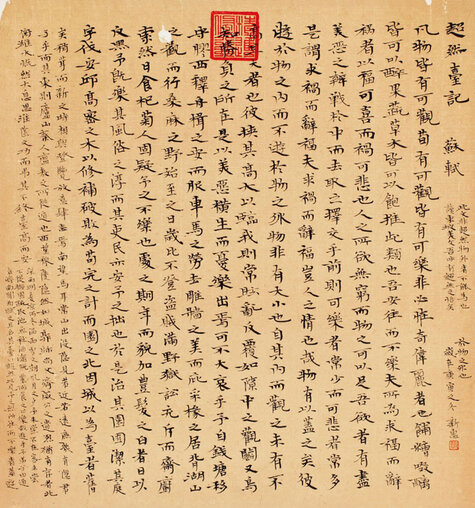 超然臺記 蘇軾
凡物皆有可觀苟有可觀皆有可樂非必怪奇偉麗者也餔糟啜醨
皆可以醉果蔬草木皆可以飽推此類也吾安往而不樂夫所為求福而辭
禍者以福可喜而禍可悲也人之所欲無窮而物之可以足吾欲者有盡
美惡之辨戰於中而去取之擇交乎前則可樂者常少而可悲者常多
是謂求禍而辭福夫求禍而辭福豈人之情也哉物有以蓋之矣彼
遊於物之內而不遊於物之外物非有大小也自其內而觀之未有不
高且大者也彼挾其高大以臨我則我常眩亂反覆如隙中之觀鬥又烏
知勝負之所在是以美惡橫生而憂樂出焉可不大哀乎予自錢塘移
守膠西釋舟楫之安而服車馬之勞去雕牆之美而庇采椽之居背湖山
之觀而行桑麻之野始至之日歲比不登盜賊滿野獄訟充斥而齋廚
索然日食杞菊人固疑予之不樂也處之期年而貌加豐髮之白者日以
反黑予既樂其風俗之淳而其吏民亦安予之拙也於是治其園囿潔其庭
宇伐安邱高密之木以修補破敗為苟完之計而園之北因城以為臺者舊
矣稍葺而新之時相與登覽放意肆志焉南望馬耳常山出沒隱見若近若遠庶幾有隱君
子乎而其東則廬山秦人盧敖之所從遁也西望穆陵隱然如城郭師尚父齊威公之遺烈猶有存者北
俯濰水慨然太息思淮陰之功而弔其不終臺高而安